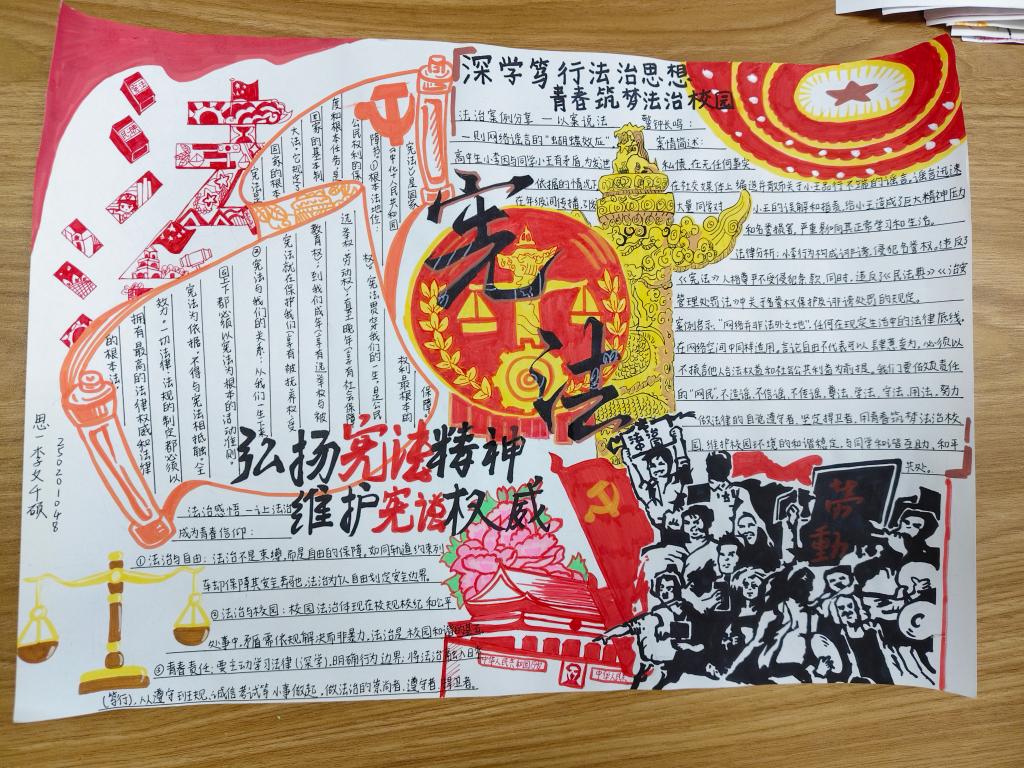 深学笃行法治思想
青春筑梦法治校园
法治案例分享——以案说法
警钟长鸣:
一则网络谣言的“蝴蝶效应”
案情简述:
高中生小李因与同学小王有矛盾,为发泄私愤,在无任何事实
依据的情况下
在社交媒体上编造并散布关于小王品行不端的谣言,谣言迅速
在年级间传播,
大量同学对小王的误解和指责,给小王造成了巨大精神压力
和名誉损害,严重影响其正常学习和生活。
法律分析:小李行为构成诽谤,侵犯名誉权。违反了
《宪法》人格尊严不受侵犯条款,同时,违反《民法典》《治安
管理处罚法》中关于名誉权保护及诽谤处罚的规定。
案例启示:“网络并非法外之地”,任何在现实生活中的法律底线,
在网络空间中同样适用。言论自由不代表可以
不损害他人合法权益和社会公共利益为前提。我们要做负责任
的“网民”,不造谣、不信谣、不传谣,尊法、学法、守法、用法,努力
做法律的自觉遵守者,坚定捍卫者,用青春筑梦法治校
园,维护校园环境的和谐稳定,与同学和谐互助,和平
共处。
宪法
宪法是国家
中华人民共和国
根本法地位:
公民权利的保
度和根本任务
国家的基本制
大法,它规定了
国家的根本
②宪法与我们的关系:从我们一生下来
宪法就在保护我们(享有被抚养权、受
教育权);到我们成年(享有选举权与被
选举权、劳动权);直至晚年(享有社会保障
权),宪法贯穿我们的一生,是公民
权利最根本的
保障。
国上下都必须以宪法为根本的活动准则。
宪法为依据,不得与宪法相抵触,全
效力,一切法律、法规的制定都必须以
拥有最高的法律权威和法律
的根本法,
弘扬宪法精神
维护宪法权威
思一 李文千硕
250201048
法治感悟——让法治
成为青春信仰:
①法治与自由:法治不是束缚,而是自由的保障,如同轨道约束列
车却保障其安全奔驰,法治为个人自由划定安全边界。
②法治与校园:校园法治体现在校规校纪和公平
处事中,矛盾需依规解决而非暴力,法治是校园和谐的
③青春责任:要主动学习法律(深学),明确行为边界;将法治融入日常
(笃行),从遵守班规、诚信考试等小事做起,做法治的崇尚者、遵守者、捍卫者。
中华人民共和国万岁
中华人民
勞動